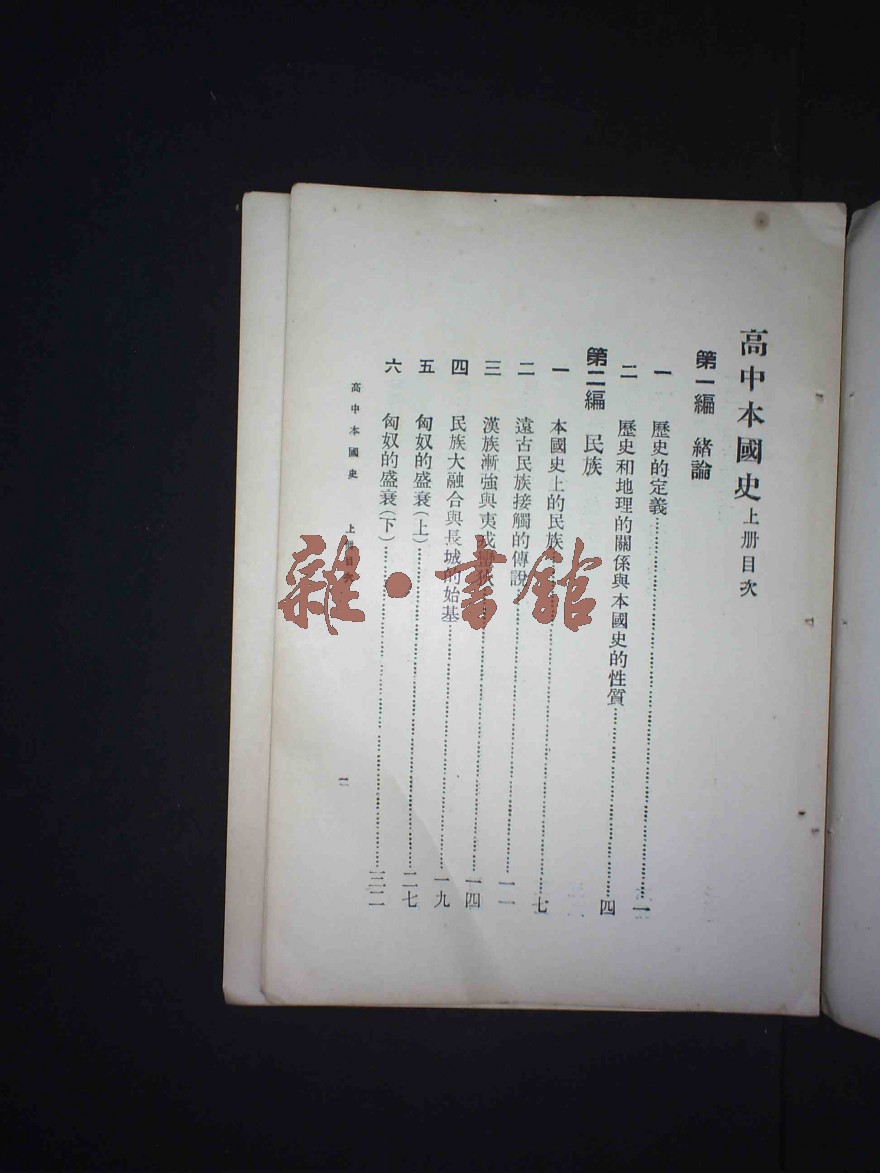 高中本國史 上册目次
第一編 緒論
一 歷史的定義……一
二 歷史和地理的關係與本國史的性質……四
第二編 民族
一 本國史上的民族……七
二 遠古民族接觸的傳說……一一
三 漢族漸強與夷戎……一四
四 民族大融合與長城的始基……一九
五 匈奴的盛衰(上)……二七
六 匈奴的盛衰(下)……三二
高中本國史 上册目次
一
雜·書館